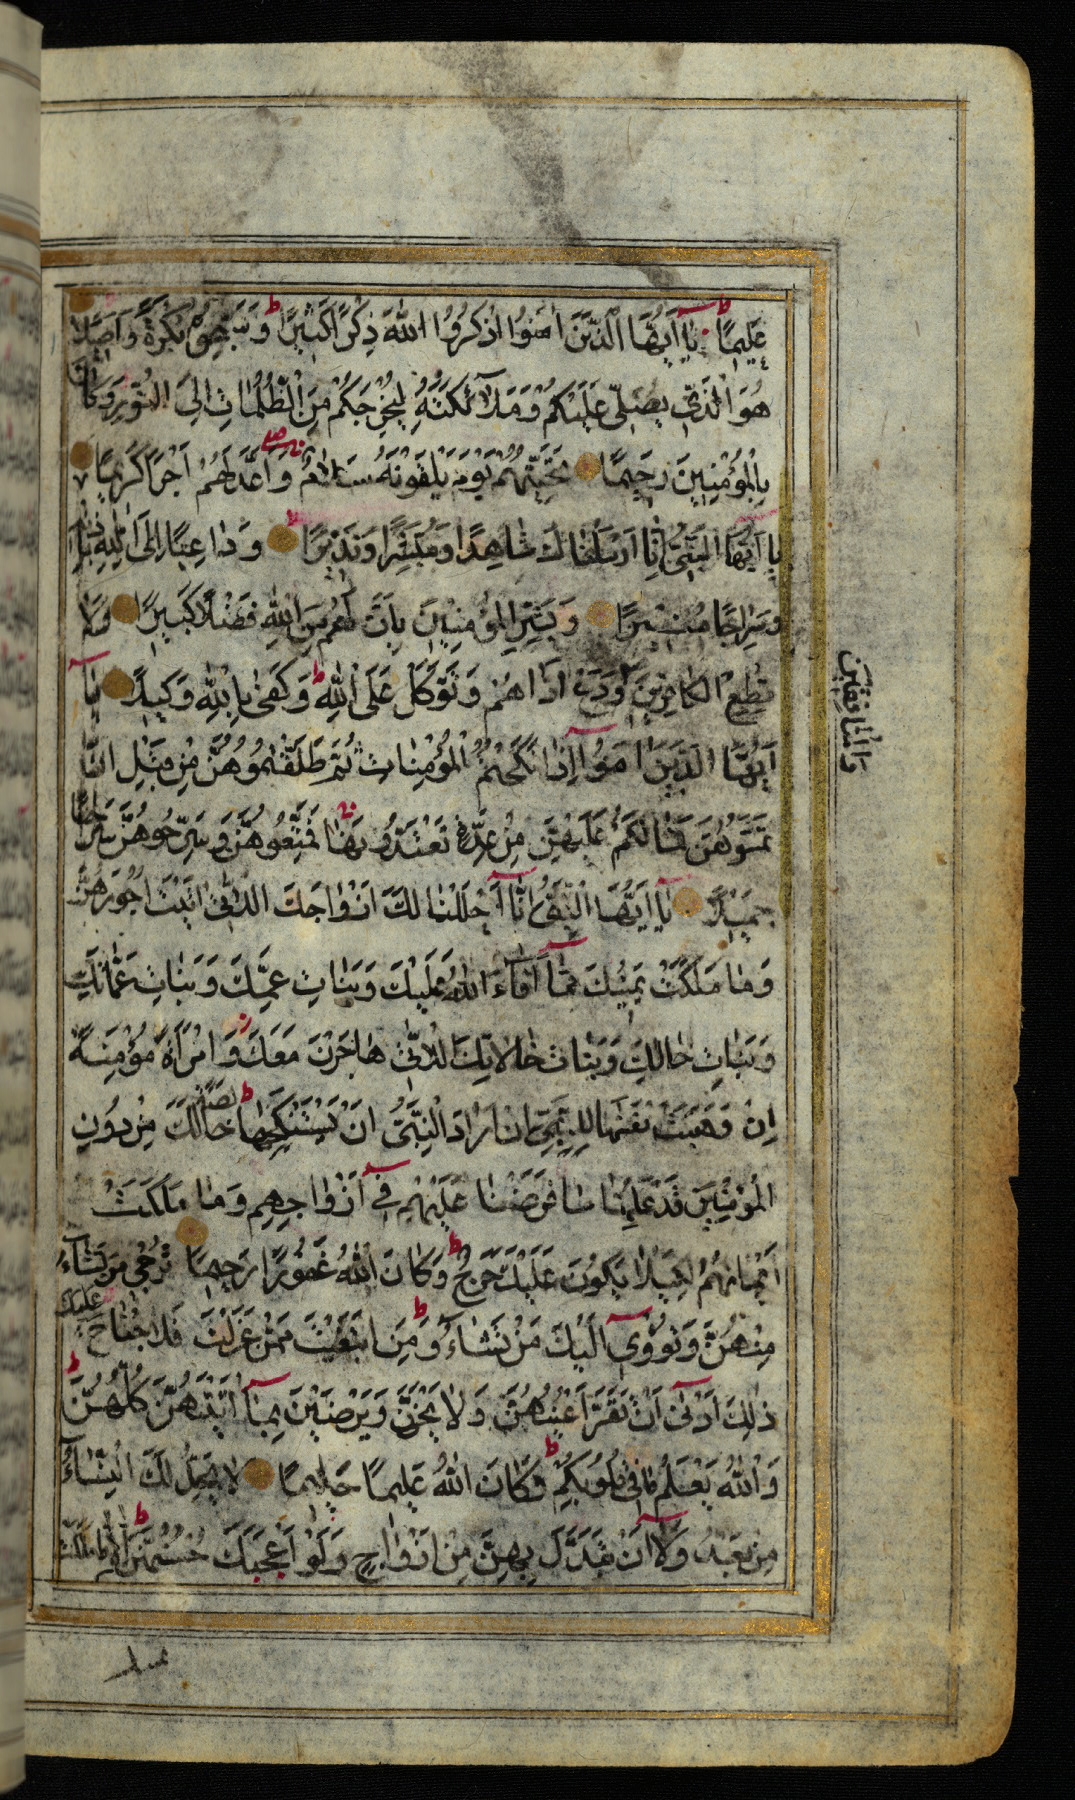 عَلِيمًا يَا أَيُّهَا الَّذِينَ اٰمَنُوا اذْكُرُوا اللّٰهَ ذِكْرًا كَثِيرًا وَسَبِّحُوهُ بُكْرَةً وَاَصِيلًا
هُوَ الَّذِي يُصَلِّي عَلَيْكُمْ وَمَلَآئِكَتُهُ لِيُخْرِجَكُمْ مِنَ الظُّلُمَاتِ اِلَى النُّورِ وَكَانَ
بِالْمُؤْمِنِينَ رَحِيمًا تَحِيَّتُهُمْ يَوْمَ يَلْقَوْنَهُ سَلَامٌ وَاَعَدَّ لَهُمْ اَجْرًا كَرِيمًا
يَا اَيُّهَا النَّبِيُّ اِنَّا اَرْسَلْنَاكَ شَاهِدًا وَمُبَشِّرًا وَنَذِيرًا وَدَاعِيًا اِلَى اللّٰهِ بِاِذْنِهِ
وَسِرَاجًا مُنِيرًا وَبَشِّرِ الْمُؤْمِنِينَ بِاَنَّ لَهُمْ مِنَ اللّٰهِ فَضْلًا كَبِيرًا وَلَا
تُطِعِ الْكَافِرِينَ وَدَعْ اَذَاهُمْ وَتَوَكَّلْ عَلَى اللّٰهِ وَكَفَى بِاللّٰهِ وَكِيلًا يَآ
وَالْمُنَافِقِينَ
اَيُّهَا الَّذِينَ اٰمَنُوا اِذَا نَكَحْتُمُ الْمُؤْمِنَاتِ ثُمَّ طَلَّقْتُمُوهُنَّ مِنْ قَبْلِ اَنْ
تَمَسُّوهُنَّ فَمَا لَكُمْ عَلَيْهِنَّ مِنْ عِدَّةٍ تَعْتَدُّونَهَا فَمَتِّعُوهُنَّ وَسَرِّحُوهُنَّ سَرَاحًا
جَمِيلًا يَآ اَيُّهَا النَّبِيُّ اِنَّآ اَحْلَلْنَا لَكَ اَزْوَاجَكَ اللَّاتِي اٰتَيْتَ اُجُورَهُنَّ
وَمَا مَلَكَتْ يَمِينُكَ مِمَّآ اَفَآءَ اللّٰهُ عَلَيْكَ وَبَنَاتِ عَمِّكَ وَبَنَاتِ عَمَّاتِكَ
وَبَنَاتِ خَالِكَ وَبَنَاتِ خَالَاتِكَ اللَّاتِي هَاجَرْنَ مَعَكَ وَامْرَاَةً مُؤْمِنَةً
اِنْ وَهَبَتْ نَفْسَهَا لِلنَّبِيِّ اِنْ اَرَادَ النَّبِيُّ اَنْ يَسْتَنْكِحَهَا خَالِصَةً لَكَ مِنْ دُونِ
الْمُؤْمِنِينَ قَدْ عَلِمْنَا مَا فَرَضْنَا عَلَيْهِمْ فِي اَزْوَاجِهِمْ وَمَا مَلَكَتْ
اَيْمَانُهُمْ لِكَيْلَا يَكُونَ عَلَيْكَ حَرَجٌ وَكَانَ اللّٰهُ غَفُورًا رَحِيمًا تُرْجِي مَنْ تَشَآءُ
مِنْهُنَّ وَتُؤْوِي اِلَيْكَ مَنْ تَشَآءُ وَمَنِ ابْتَغَيْتَ مِمَّنْ عَزَلْتَ فَلَا جُنَاحَ عَلَيْكَ
ذٰلِكَ اَدْنَى اَنْ تَقَرَّ اَعْيُنُهُنَّ وَلَا يَحْزَنَّ وَيَرْضَيْنَ بِمَآ اٰتَيْتَهُنَّ كُلُّهُنَّ
وَاللّٰهُ يَعْلَمُ مَا فِي قُلُوبِكُمْ وَكَانَ اللّٰهُ عَلِيمًا حَلِيمًا لَا يَحِلُّ لَكَ النِّسَآءُ
مِنْ بَعْدُ وَلَآ اَنْ تَبَدَّلَ بِهِنَّ مِنْ اَزْوَاجٍ وَلَوْ اَعْجَبَكَ حُسْنُهُنَّ اِلَّا مَا مَلَكَتْ